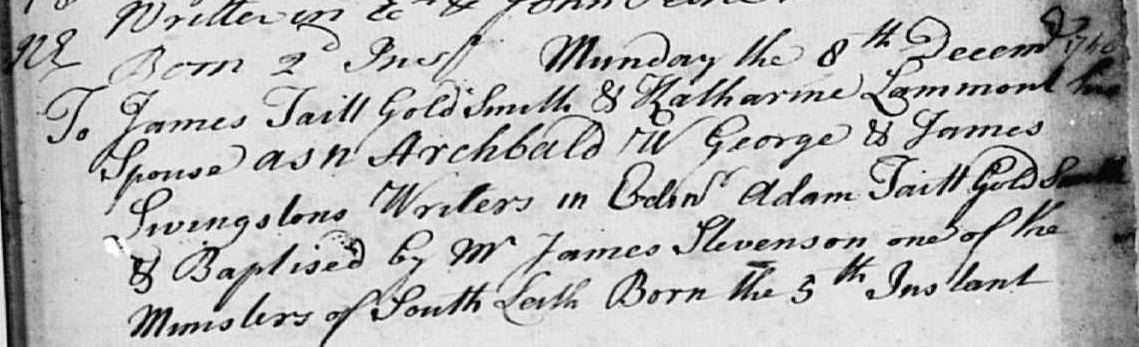 Written in
NE Born 2d Inst Munday the 8th Decemr 1740
To James Taitt Gold Smith & Katharine Lammont his
Spouse a s n Archbald W George & James
Livingstons Writers in Edinr Adam Taitt Gold Smith
& Baptised by Mr James Stevenson one of the
Ministers of South Leith Born the 5th Instant